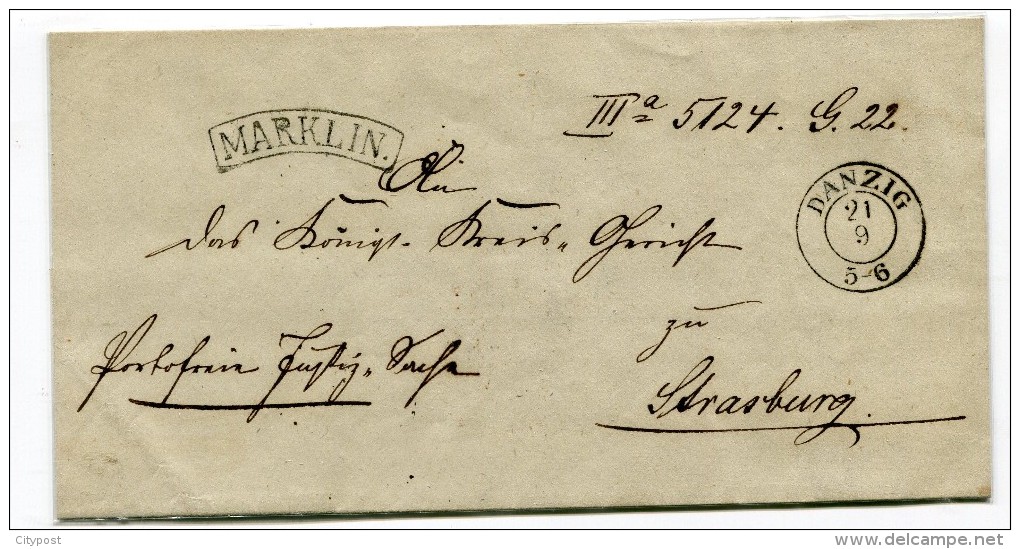 IIIª 5124. G. 22.
MARKLIN.
An
das Königl. Kreis-Gericht
DANZIG
21
9
5-6
zu
Portofreie Justiz-Sache
Strasburg.
Citypost
www.delcampe.net